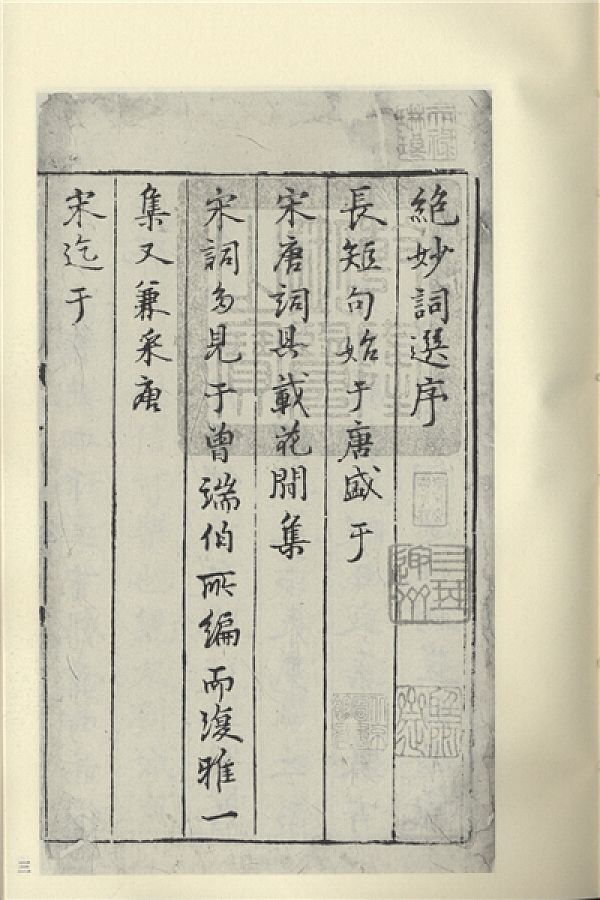 絶妙詞選序
長短句始于唐盛于
宋唐詞具載花間集
宋詞多見于曾端伯所編而復雅一
集又兼采唐
宋迄于
三